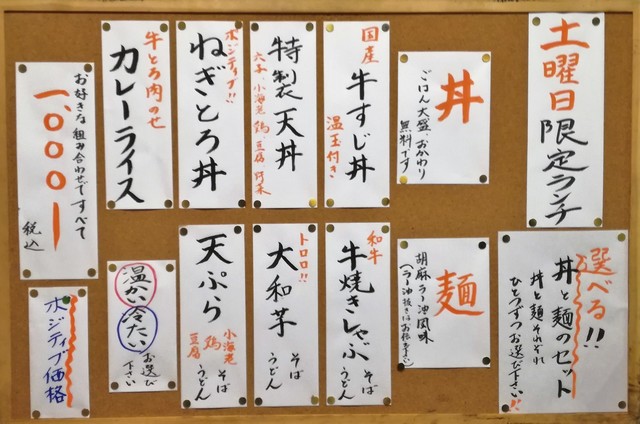 土曜日限定ランチ
選べる!!
丼と麺のセット
丼と麺それぞれ
ひとつずつお選び下さい!!
丼
ごはん大盛、おかわり
無料です
国産
牛すじ丼
温玉付き
特製天丼
小海老 鶏 豆腐
ポジティブ!!
ねぎとろ丼
牛とろ肉のせ
カレーライス
お好きな組み合わせですべて
一、〇〇〇ー
税込
麺
胡麻ラー油風味
(ラー油抜きはお伝え下さい)
和牛
牛焼きしゃぶ
そば
うどん
トロロ!!
大和芋
そば
うどん
天ぷら
小海老
鶏
豆腐
そば
うどん
温かい
冷たい
お選び
下さい
ポジティブ価格